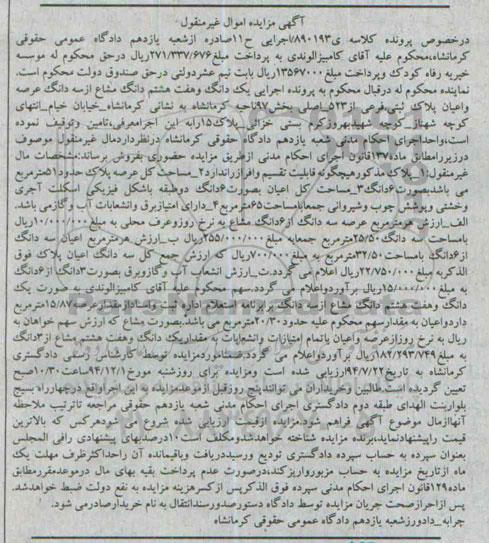 آگهی مزایده اموال غیرمنقول
درخصوص پرونده کلاسه ی۸۹۰۱۹۳/اجرایی ح۱۱صادره ازشعبه یازدهم دادگاه عمومی حقوقی
کرمانشاه،محکوم علیه آقای کامبیزالوندی به پرداخت مبلغ۲۷۱/۳۳۷/۶۷۶ریال درحق محکوم له موسسه
خیریه رفاه کودک وپرداخت مبلغ۱۳۵۶۷۰۰۰ریال بابت نیم عشردولتی درحق صندوق دولت محکوم است.
نماینده محکوم له درقبال محکوم به پرونده اجرایی یک دانگ وهفت هشتم دانگ مشاع ازسه دانگ عرصه
واعیان پلاک ثبتی،فرعی از۵۲۳_اصلی بخش۹۷ناحیه کرمانشاه به نشانی کرمانشاه_خیابان خیام_انتهای
کوچه شهناز_کوچه شهیدبهروزکرم بستی خزائی_پلاک۱۵رابه این اجرامعرفی،تامین وتوقیف نموده
است،واحداجرای احکام مدنی شعبه یازدهم دادگاه حقوقی کرمانشاه درنظرداردمال غیرمنقول موصوف
درزیررامطابق ماده۱۳۷قانون اجرای احکام مدنی ازطریق مزایده حضوری بفروش برساند:مشخصات مال
غیرمنقول:۱_پلاک مذکورهیچگونه قابلیت تقسیم وافرازراندارد۲_مساحت کل عرصه پلاک حدود۵۱مترمربع
می باشدبصورت۶دانگ۳_مساحت کل اعیان بصورت۶دانگ دوطبقه باشکل فیزیکی اسکلت آجری
وخشتی وپوشش چوب وشیروانی جمعابامساحت۶۵مترمربع۴_دارای امتیازبرق وانشعابات آب وگازمی باشد.
الف_ارزش هرمترمربع عرصه سه دانگ از۶دانگ مشاع به نرخ روزوعرف محلی به مبلغ۱۰/۰۰۰/۰۰۰ریال
بامساحت سه دانگ۲۵/۵۰مترمربع جمعابه مبلغ۲۵۵/۰۰۰/۰۰۰ریال ب_ارزش هرمترمربع اعیان سه دانگ
از۶دانگ بامساحت۳۲/۵۰مترمربع به مبلغ۷۰۰/۰۰۰ریال که ارزش جمع کل سه دانگ اعیان پلاک فوق
الذکربه مبلغ۲۲/۷۵۰/۰۰۰ریال اعلام می گردد.ت_ارزش انشعاب آب وگازوبرق بصورت۳دانگ از۶دانگ
به مبلغ۱۵/۰۰۰/۰۰۰ریال برآوردواعلام می گردد.سهم محکوم علیه آقای کامبیزالوندی به صورت یک
دانگ وهفت هشتم دانگ مشاع ازسه دانگ برنامه استعلام اداره ثبت واسنادازمقدارعرصه۱۵/۸۷مترمربع
داردواعیان به مقدارسهم محکوم علیه حدود۲۰/۳۰مترمربع می باشد.بصورت مشاع که ارزش سهم خواهان به
ریال به نرخ روزازعرصه واعیان باتمام امتیازات وانشعابات به مقداریک دانگ وهفت هشتم مشاع از۳دانگ
به مبلغ۱۸۲/۲۹۳/۷۴۹ریال برآوردواعلام می گردد.ضمناموردمزایده توسط کارشناس رسمی دادگستری
کرمانشاه به تاریخ۹۴/۷/۲۲ارزیابی شده است ومزایده برای روزشنبه مورخ۹۴/۱۲/۱ساعت۱۰/۳۰صبح
تعیین گردیده است.طالبین وخریداران می توانندپنج روزقبل ازموعدمزایده به این اجراواقع درچهارراه بسیج
بلواربنت الهدای طبقه دوم دادگستری اجرای احکام مدنی شعبه یازدهم حقوقی مراجعه تاترتیب ملاحظه
آنهاازمال موضوع آگهی فراهم شود.مزایده ازقیمت ارزیابی شده شروع می شودهرکس که بالاترین
قیمت راپیشنهادنماید،برنده مزایده شناخته خواهدشدومکلف است۱۰درصدبهای پیشنهادی رافی المجلس
بعنوان سپرده به حساب سپرده دادگستری تودیع ورسیددریافت وباقیمانده آن راحداکثرظرف مهلت یک
ماه ازتاریخ مزایده به حساب مزبورواریزکند،درصورت عدم پرداخت بقیه بهای مال درموعدمقررمطابق
ماده۱۲۹قانون اجرای احکام مدنی سپرده فوق الذکرپس ازکسرهزینه مزایده به نفع دولت ضبط خواهدشد.
پس ازاحرازصحت جریان مزایده توسط دادگاه دستورصدورسندانتقال به نام خریدارصادرمی شود.
چرابه_دادورزشعبه یازدهم دادگاه عمومی حقوقی کرمانشاه